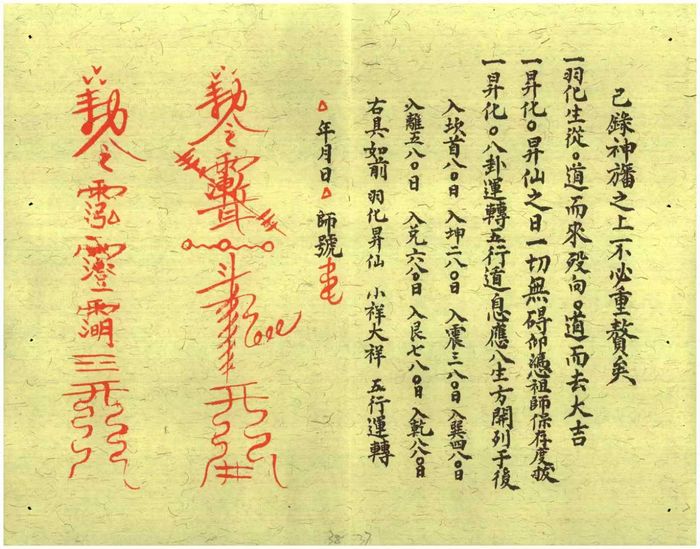 已錄神旛之上不必重贅矣
一羽化生從〇道而來歿向〇道而去大吉
一昇化〇昇仙之日一切無碍仰憑祖師保存度拔
一昇化〇八卦運轉五行道息應八生方開列于後
入坎首八〇日 入坤二八〇日 入震三八〇日 入巽四八〇日
入離五八〇日 入兌六八〇日 入艮七八〇日 入乾八八〇日
右具如前 羽化昇仙 小祥大祥 五行運轉
年月日 師號
勅令
勅令 霐 霪 三